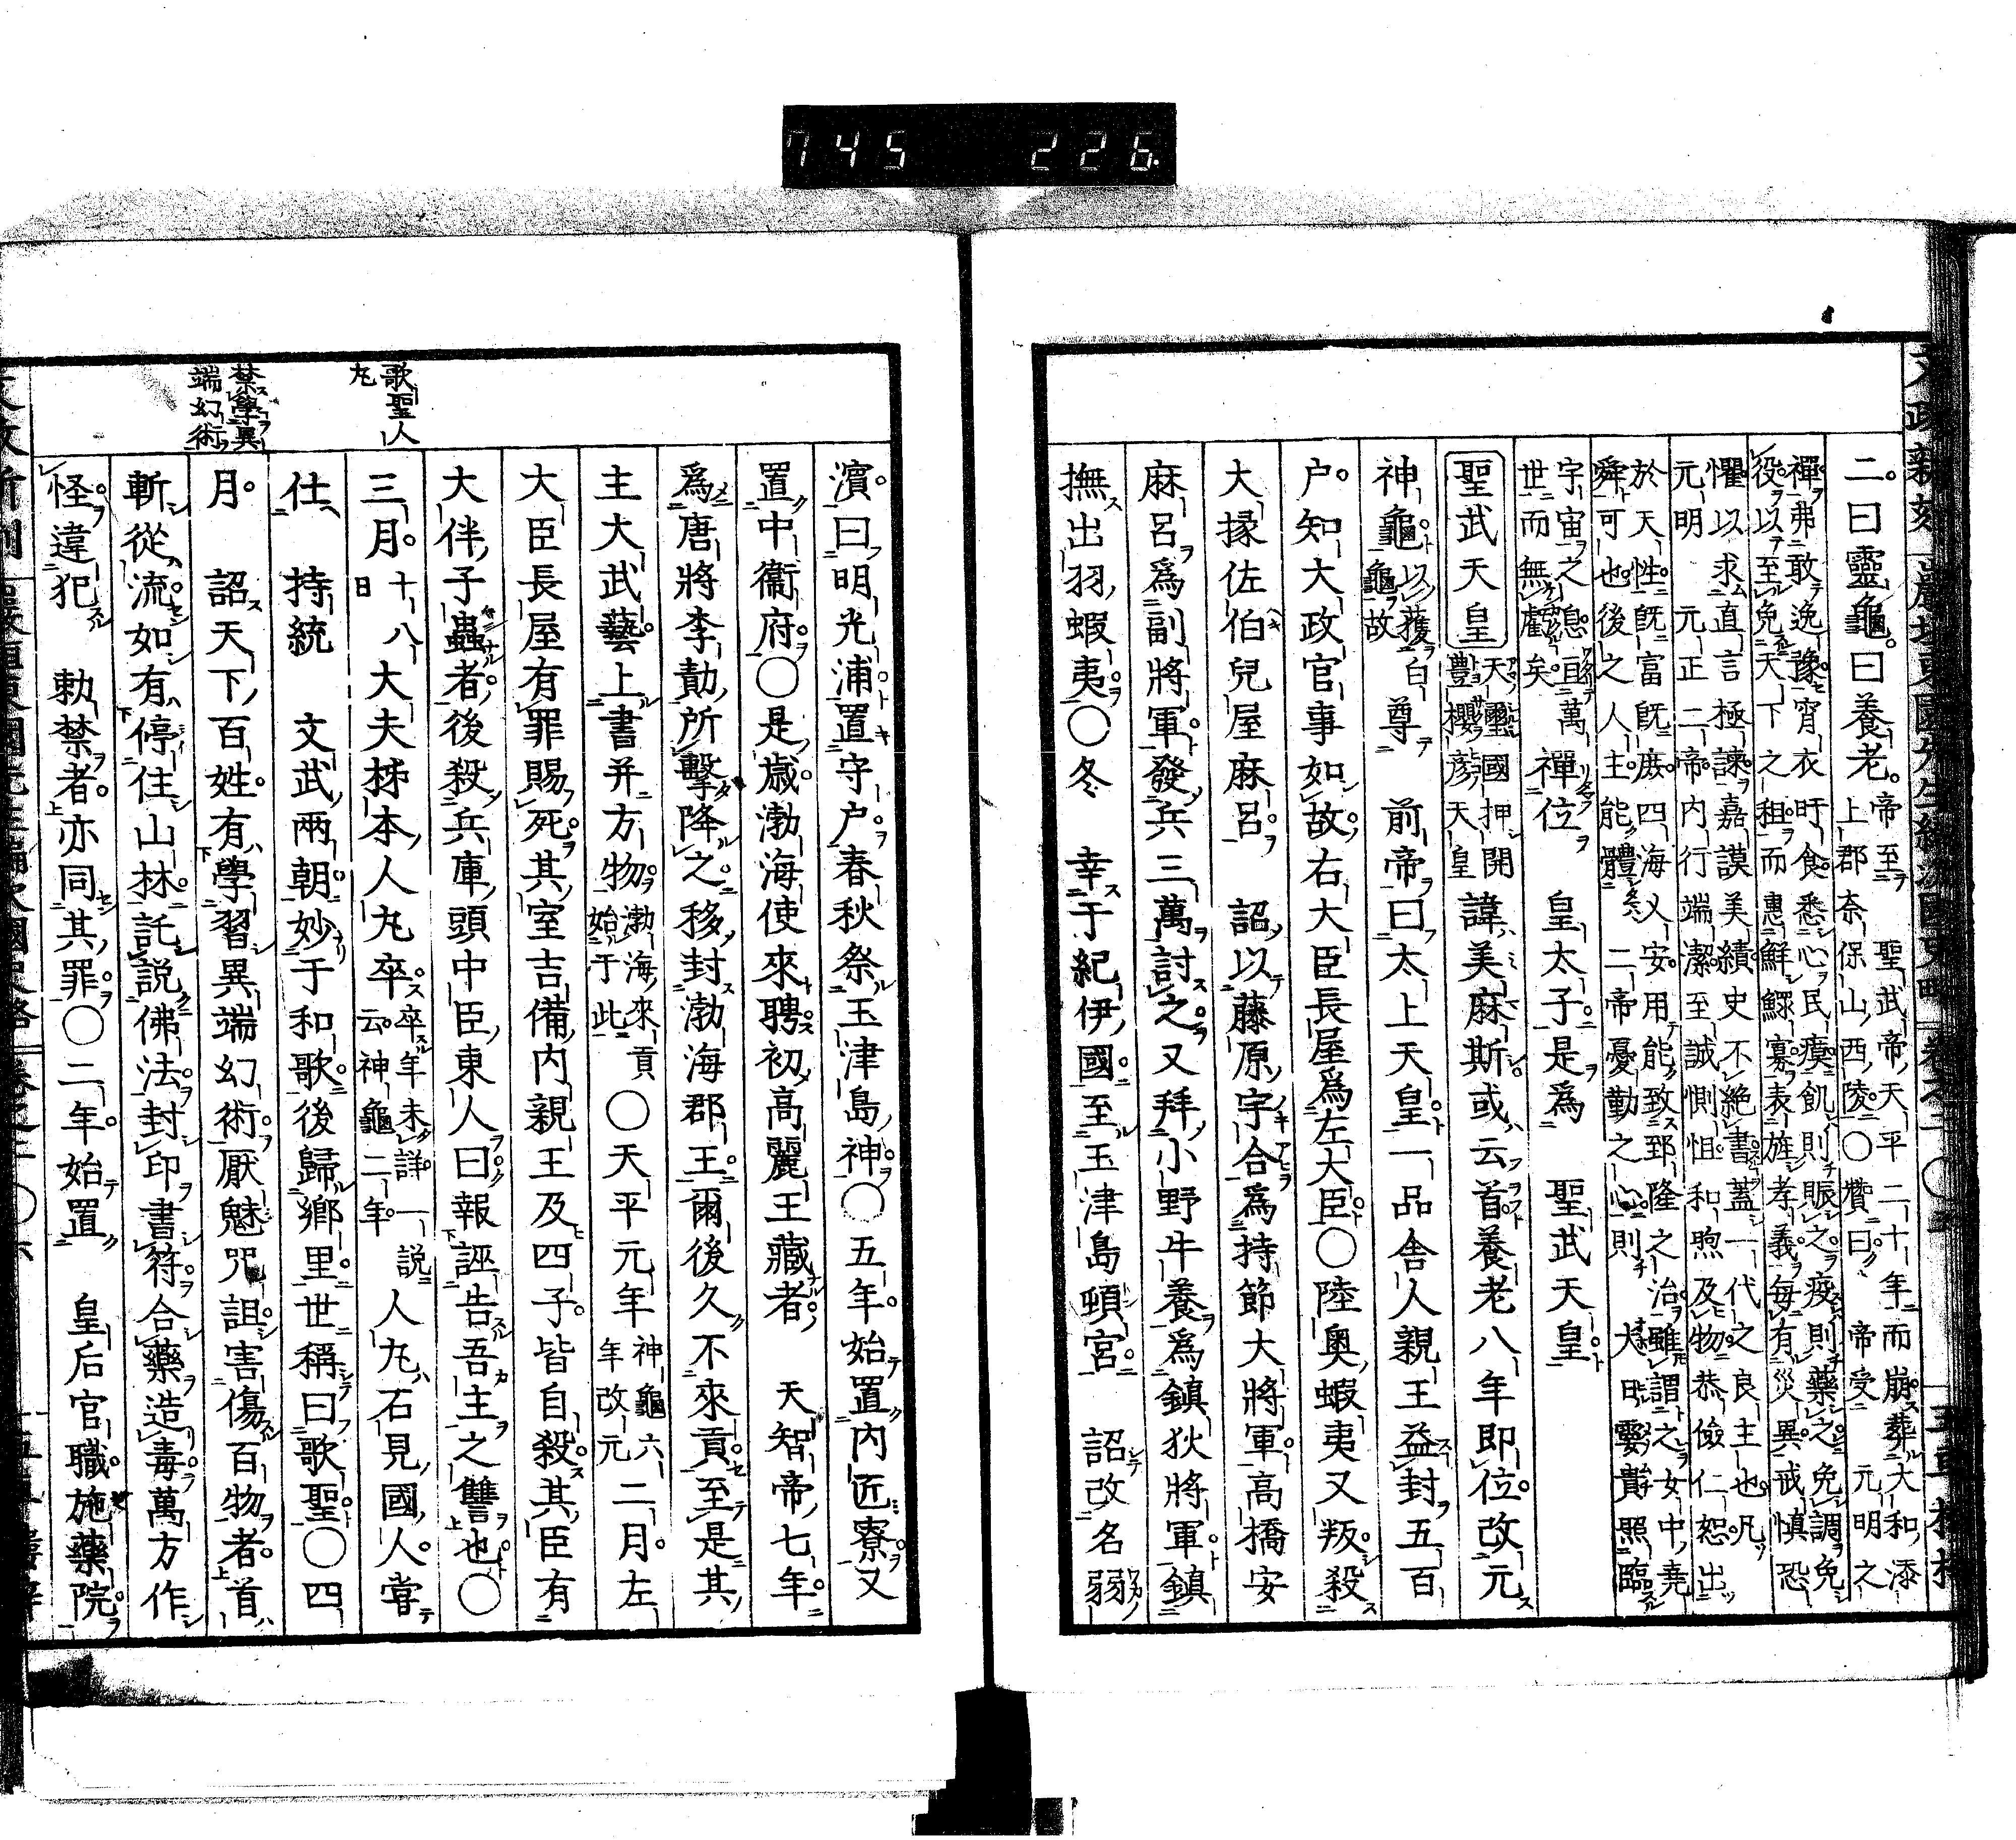 745 226
二曰靈龜曰養老帝至聖武帝天平二十年而崩葬大和添
上郡奈保山西陵〇贊曰帝受元明之
禪弗敢逸豫宵衣旰食悉心民瘼飢則賑之疫則藥之免調免
役以至免天下之租而惠鮮鰥寡表旌孝義每有災異戒慎恐
懼以求直言極諫嘉謨美績史不絕書蓋一代之良主也凡
元明元正二帝内行端潔至誠惻怛和煦及物恭儉仁恕出
於天性既富既庶四海乂安用能致郅隆之治雖謂之女中堯
舜可也後之人主能體二帝憂勤之心則
宇宙之息亘萬
世而無虧矣禪位皇太子是爲聖武天皇
聖武天皇天璽國押開
豐櫻彦天皇諱美麻斯或云首養老八年即位改元
神龜以獲白
龜故尊前帝曰太上天皇一品舍人親王益封五百
戸知大政官事如故右大臣長屋爲左大臣〇陸奥蝦夷又叛殺
大掾佐伯兒屋麻呂詔以藤原宇合爲持節大將軍高橋安
麻呂爲副將軍發兵三萬討之又拜小野牛養爲鎮狄將軍鎮
撫出羽蝦夷〇冬幸于紀伊國至玉津島頓宮詔改名弱
濱曰明光浦置守戸春秋祭玉津島神〇五年始置内匠寮又
置中衞府〇是歲渤海使來聘初高麗王藏者天智帝七年
爲唐將李勣所擊降之移封渤海郡王爾後久不來貢至是其
主大武藝上書并方物渤海來貢
始于此〇天平元年神龜六
年改元二月左
大臣長屋有罪賜死其室吉備内親王及四子皆自殺其臣有
大伴子蟲者後殺兵庫頭中臣東人曰報誣告吾主之讐也〇
三月十八
日大夫柹本人丸卒卒年未詳一說
云神龜二年人丸石見國人嘗
仕持統文武兩朝妙于和歌後歸鄉里世稱曰歌聖〇四
月詔天下百姓有學習異端幻術厭魅咒詛害傷百物者首
斬從流如有停住山林託說佛法封印書符合藥造毒萬方作
怪違犯勅禁者亦同其罪〇二年始置皇后宮職施藥院
歌聖人
丸
禁學異
端幻術